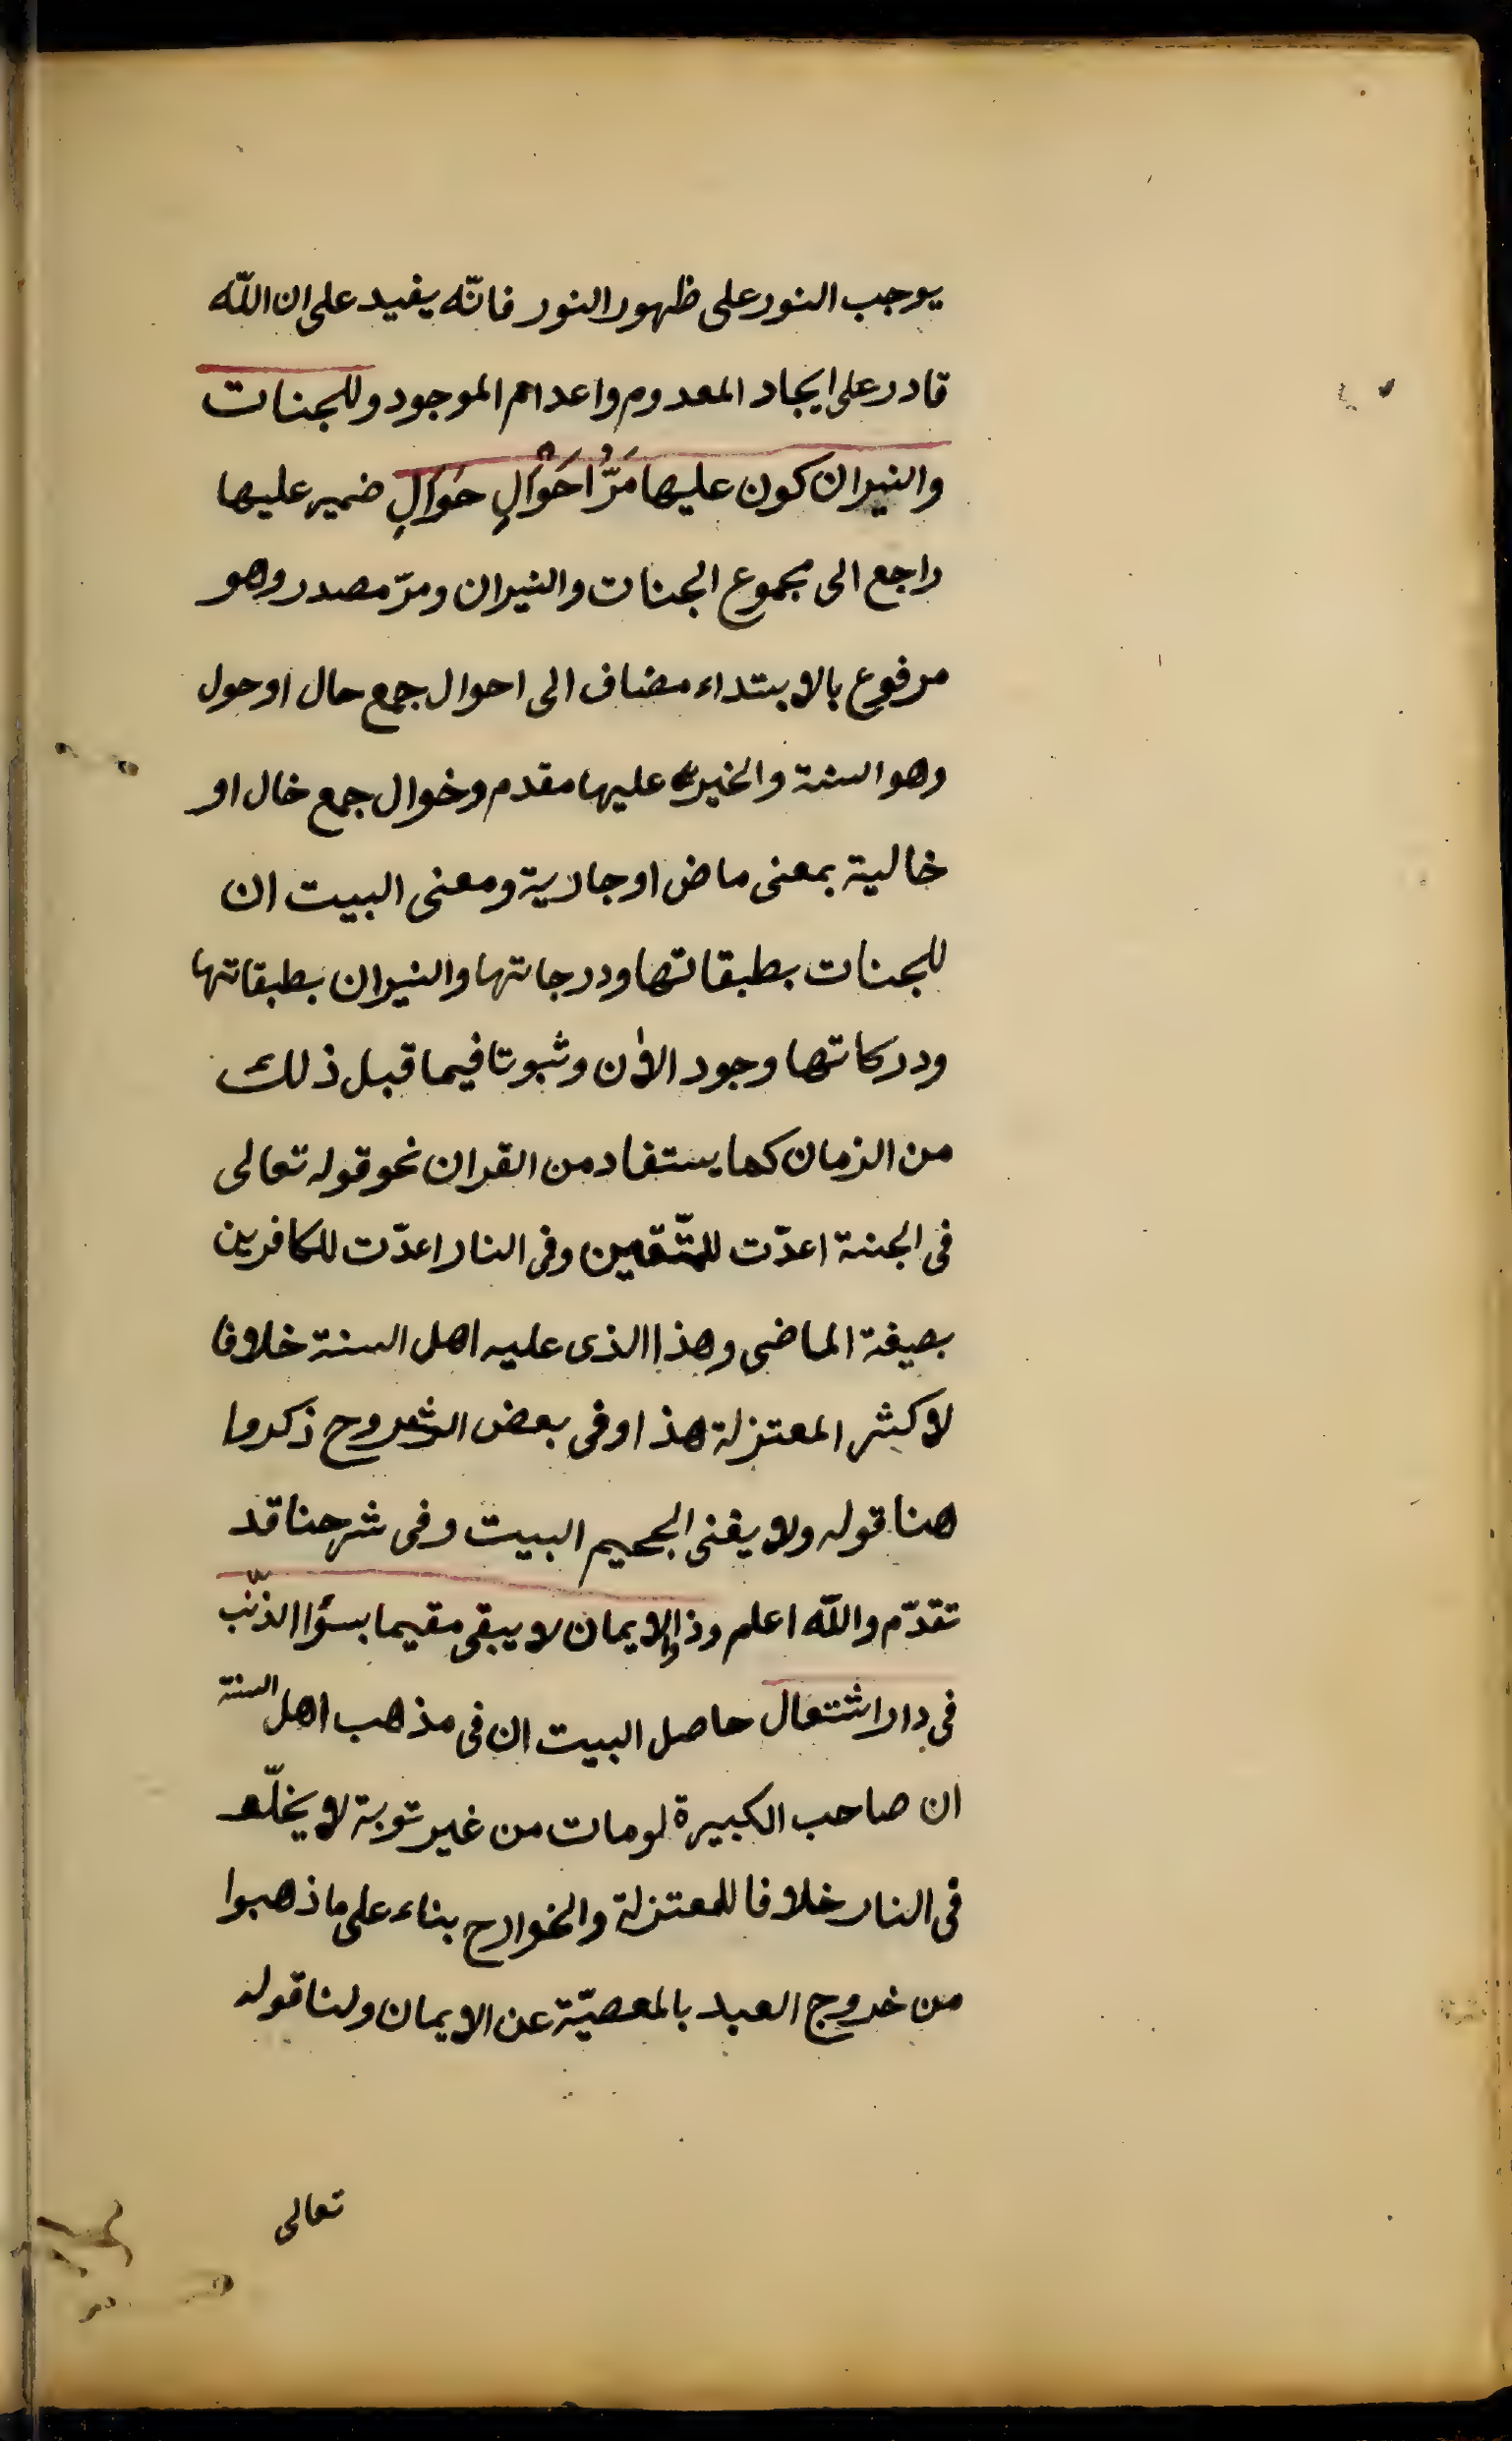 يوجب النور على ظهور النور فانّه يفيد على ان اللّه
قادر على ايجاد المعدوم واعدام الموجود وللجنات
والنيران كون عليها مَرُّ اَحْوَالٍ خَوَالٍ ضمير عليها
راجع الى مجموع الجنات والنيران ومرّ مصدر وهو
مرفوع بالابتداء مضاف الى احوال جمع حال او حول
وهو السنة والخبر عليها مقدم وخوال جمع خال او
خالية بمعنى ماض او جارية ومعنى البيت ان
للجنات بطبقاتها ودرجاتها والنيران بطبقاتها
ودركاتها وجود الاٰن وثبوتا فيما قبل ذلك
من الزمان كما يستفاد من القران نحو قوله تعالى
فى الجنة اعدّت للمتّقين وفى النار اعدّت للكافرين
بصيغة الماضى وهذا الذى عليه اهل السنة خلافا
لاكثر المعتزلة هذا وفى بعض الشروح ذكروا
هنا قوله ولا يفنى الجحيم البيت وفى شرحنا قد
تقدّم واللّه اعلم وذو الايمان لا يبقى مقيما بسؤ الذّنب
فى دار اشتعال حاصل البيت ان فى مذهب اهل السنة
ان صاحب الكبيرة لو مات من غير توبة لا يخلّد
فى النار خلافا للمعتزلة والخوارج بناء على ما ذهبوا
من خروج العبد بالمعصيّة عن الايمان ولنا قوله
تعالى